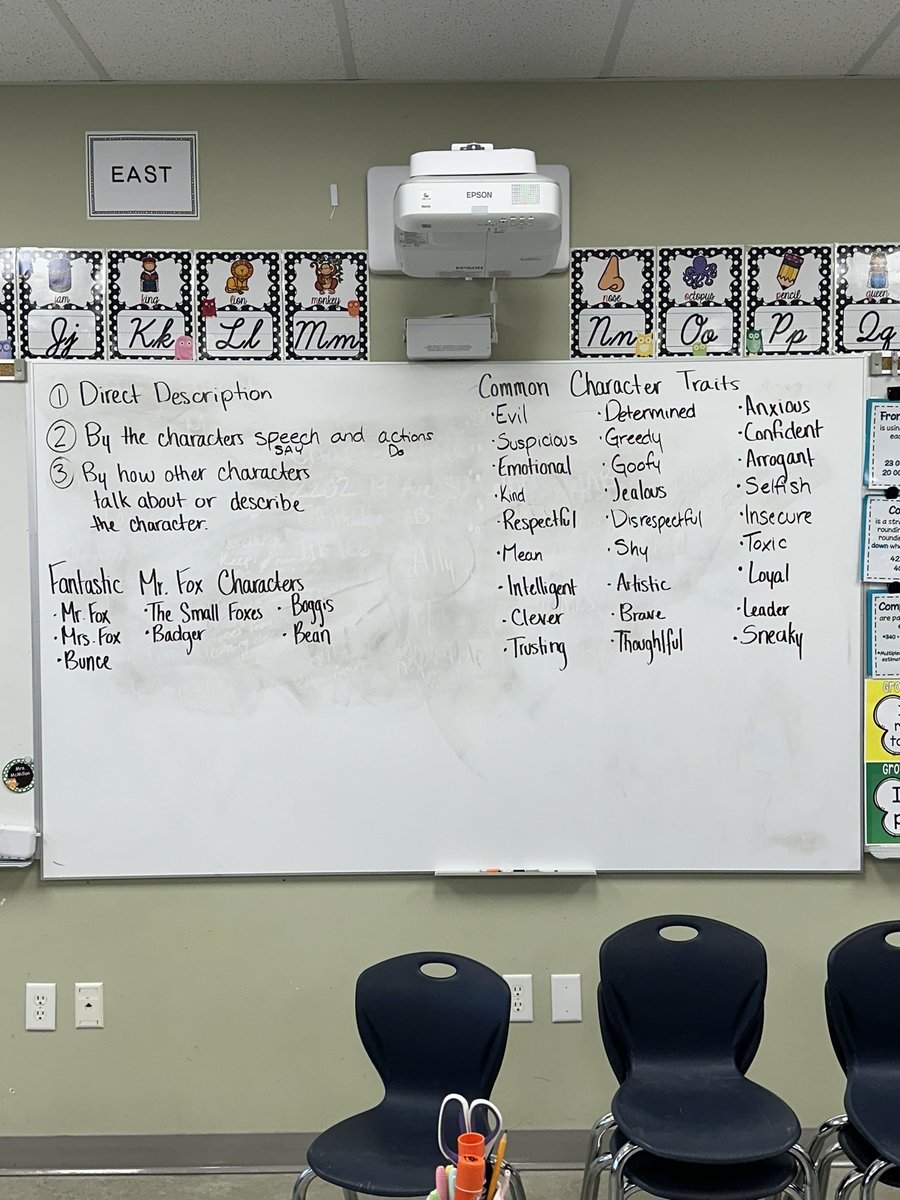 EAST
EPSON
EPSON
jam
king
lion
monkey
nose
octopus
pencil
queen
Jj
Kk
Ll
Mm
Nn
Oo
Pp
Qq
① Direct Description
② By the characters speech and actions
SAY
Do
③ By how other characters
talk about or describe
the character.
Fantastic Mr. Fox Characters
·Mr. Fox ·The Small Foxes ·Boggis
·Mrs. Fox ·Badger ·Bean
·Bunce
Common Character Traits
·Evil ·Determined ·Anxious
·Suspicious ·Greedy ·Confident
·Emotional ·Goofy ·Arrogant
·Kind ·Jealous ·Selfish
·Respectful ·Disrespectful ·Insecure
·Mean ·Shy ·Toxic
·Intelligent ·Artistic ·Loyal
·Clever ·Brave ·Leader
·Trusting ·Thoughtful ·Sneaky
Mrs.
McMillan